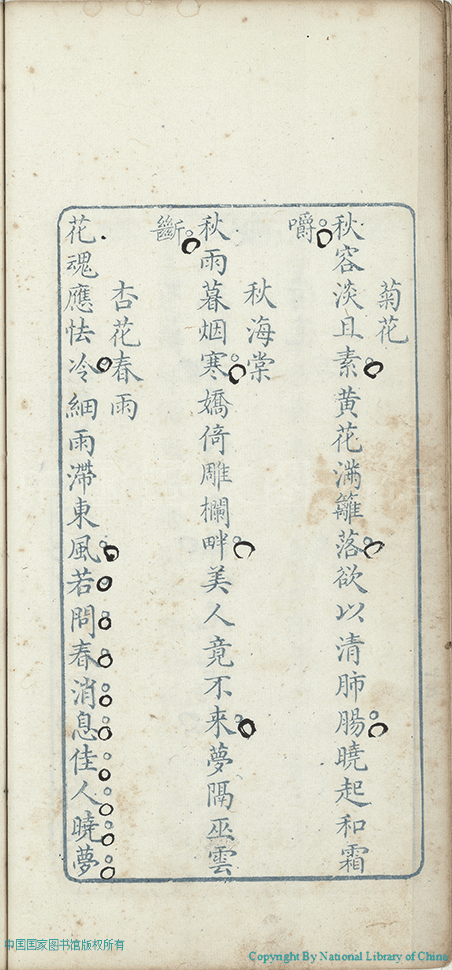 菊花
秋容淡且素黃花滿籬落欲以清肺腸曉起和霜
嚼
秋海棠
秋雨暮烟寒嬌倚雕欄畔美人竟不来夢隔巫雲
斷
杏花春雨
花魂應怯冷細雨滯東風若問春消息佳人曉夢
中国国家图书馆版权所有
Copyright By National Library of China